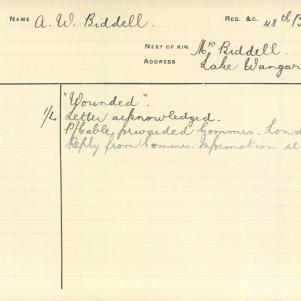 NAME A. W. Biddell REG. &C. 48th B
NEXT OF KIN Mr Biddell.
ADDRESS Lake Wangar
"Wounded".
1/4 Letter acknowledged.
P/Cable forwarded Commrs. Lond
Reply from Commr. Information al